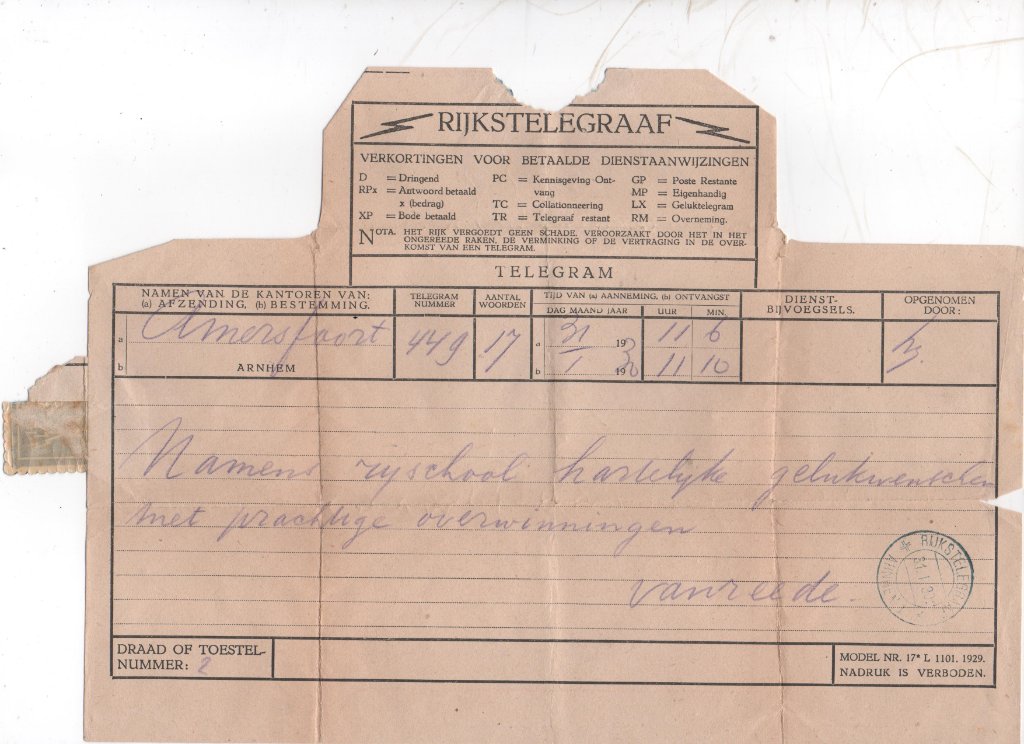 RIJKSTELEGRAAF
VERKORTINGEN VOOR BETAALDE DIENSTAANWIJZINGEN
D = Dringend
RPx = Antwoord betaald
x (bedrag)
XP = Bode betaald
PC = Kennisgeving Ont-
vang
TC = Collationneering
TR = Telegraaf restant
GP = Poste Restante
MP = Eigenhandig
LX = Geluktelegram
RM = Overneming.
NOTA. HET RIJK VERGOEDT GEEN SCHADE, VEROORZAAKT DOOR HET IN HET
ONGEREEDE RAKEN, DE VERMINKING OF DE VERTRAGING IN DE OVER-
KOMST VAN EEN TELEGRAM.
TELEGRAM
NAMEN VAN DE KANTOREN VAN:
(a) AFZENDING. (b) BESTEMMING.
TELEGRAM
NUMMER
AANTAL
WOORDEN
TIJD VAN (a) AANNEMING, (b) ONTVANGST
DAG MAAND JAAR
UUR
MIN.
DIENST-
BIJVOEGSELS.
OPGENOMEN
DOOR:
a Amersfoort 449 17 a 31 193 11 6
b ARNHEM b 1 1930 11 10
Namens rijschool hartelijke gelukwenschen
met prachtige overwinningen
vanreede.
ARNHEM RIJKSTELEGRAAF
DRAAD OF TOESTEL-
NUMMER: 2
MODEL NR. 17* L 1101. 1929.
NADRUK IS VERBODEN.